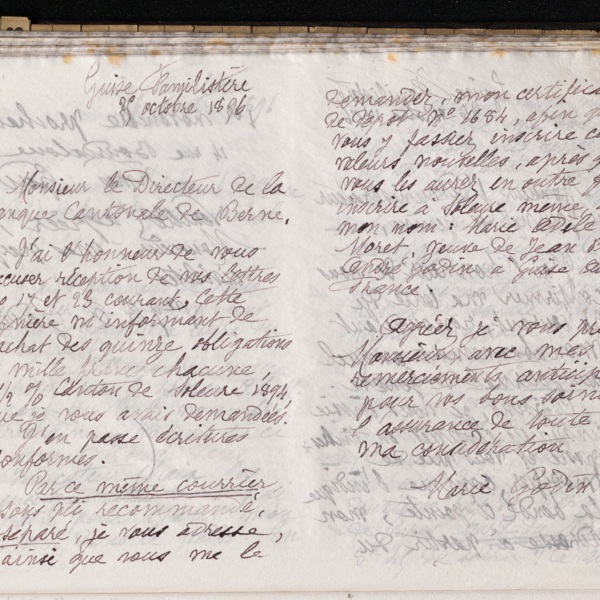 Guise Familistère
26 octobre 1896
Monsieur le Directeur de la
anque Cantonale de Berne,
J'ai l'honneur de vous
ccuser réception de vos lettres
17 et 23 courant. Cette
nière m'informant de
achat des quinze obligations
mille francs chacune,
½ % Canton de Soleure 1894,
ue je vous avais demandées.
J'en passe écritures
conformes.
Par ce même courrier
sous pli recommandé,
séparé, je vous adresse,
ainsi que vous me le
demandez, mon certifica
de dépôt N° 1684, afin q
vous y fassiez inscrire c
valeurs nouvelles, après q
vous les aurez en outre f
inscrire à Soleure même
mon nom : Marie Adèle
Moret, veuve de Jean B
André Godin à Guise
France.
Agréez, je vous pr
Monsieur avec mes
remerciements anticip
pour vos bons soins
l'assurance de toute
ma considération
Marie Godin